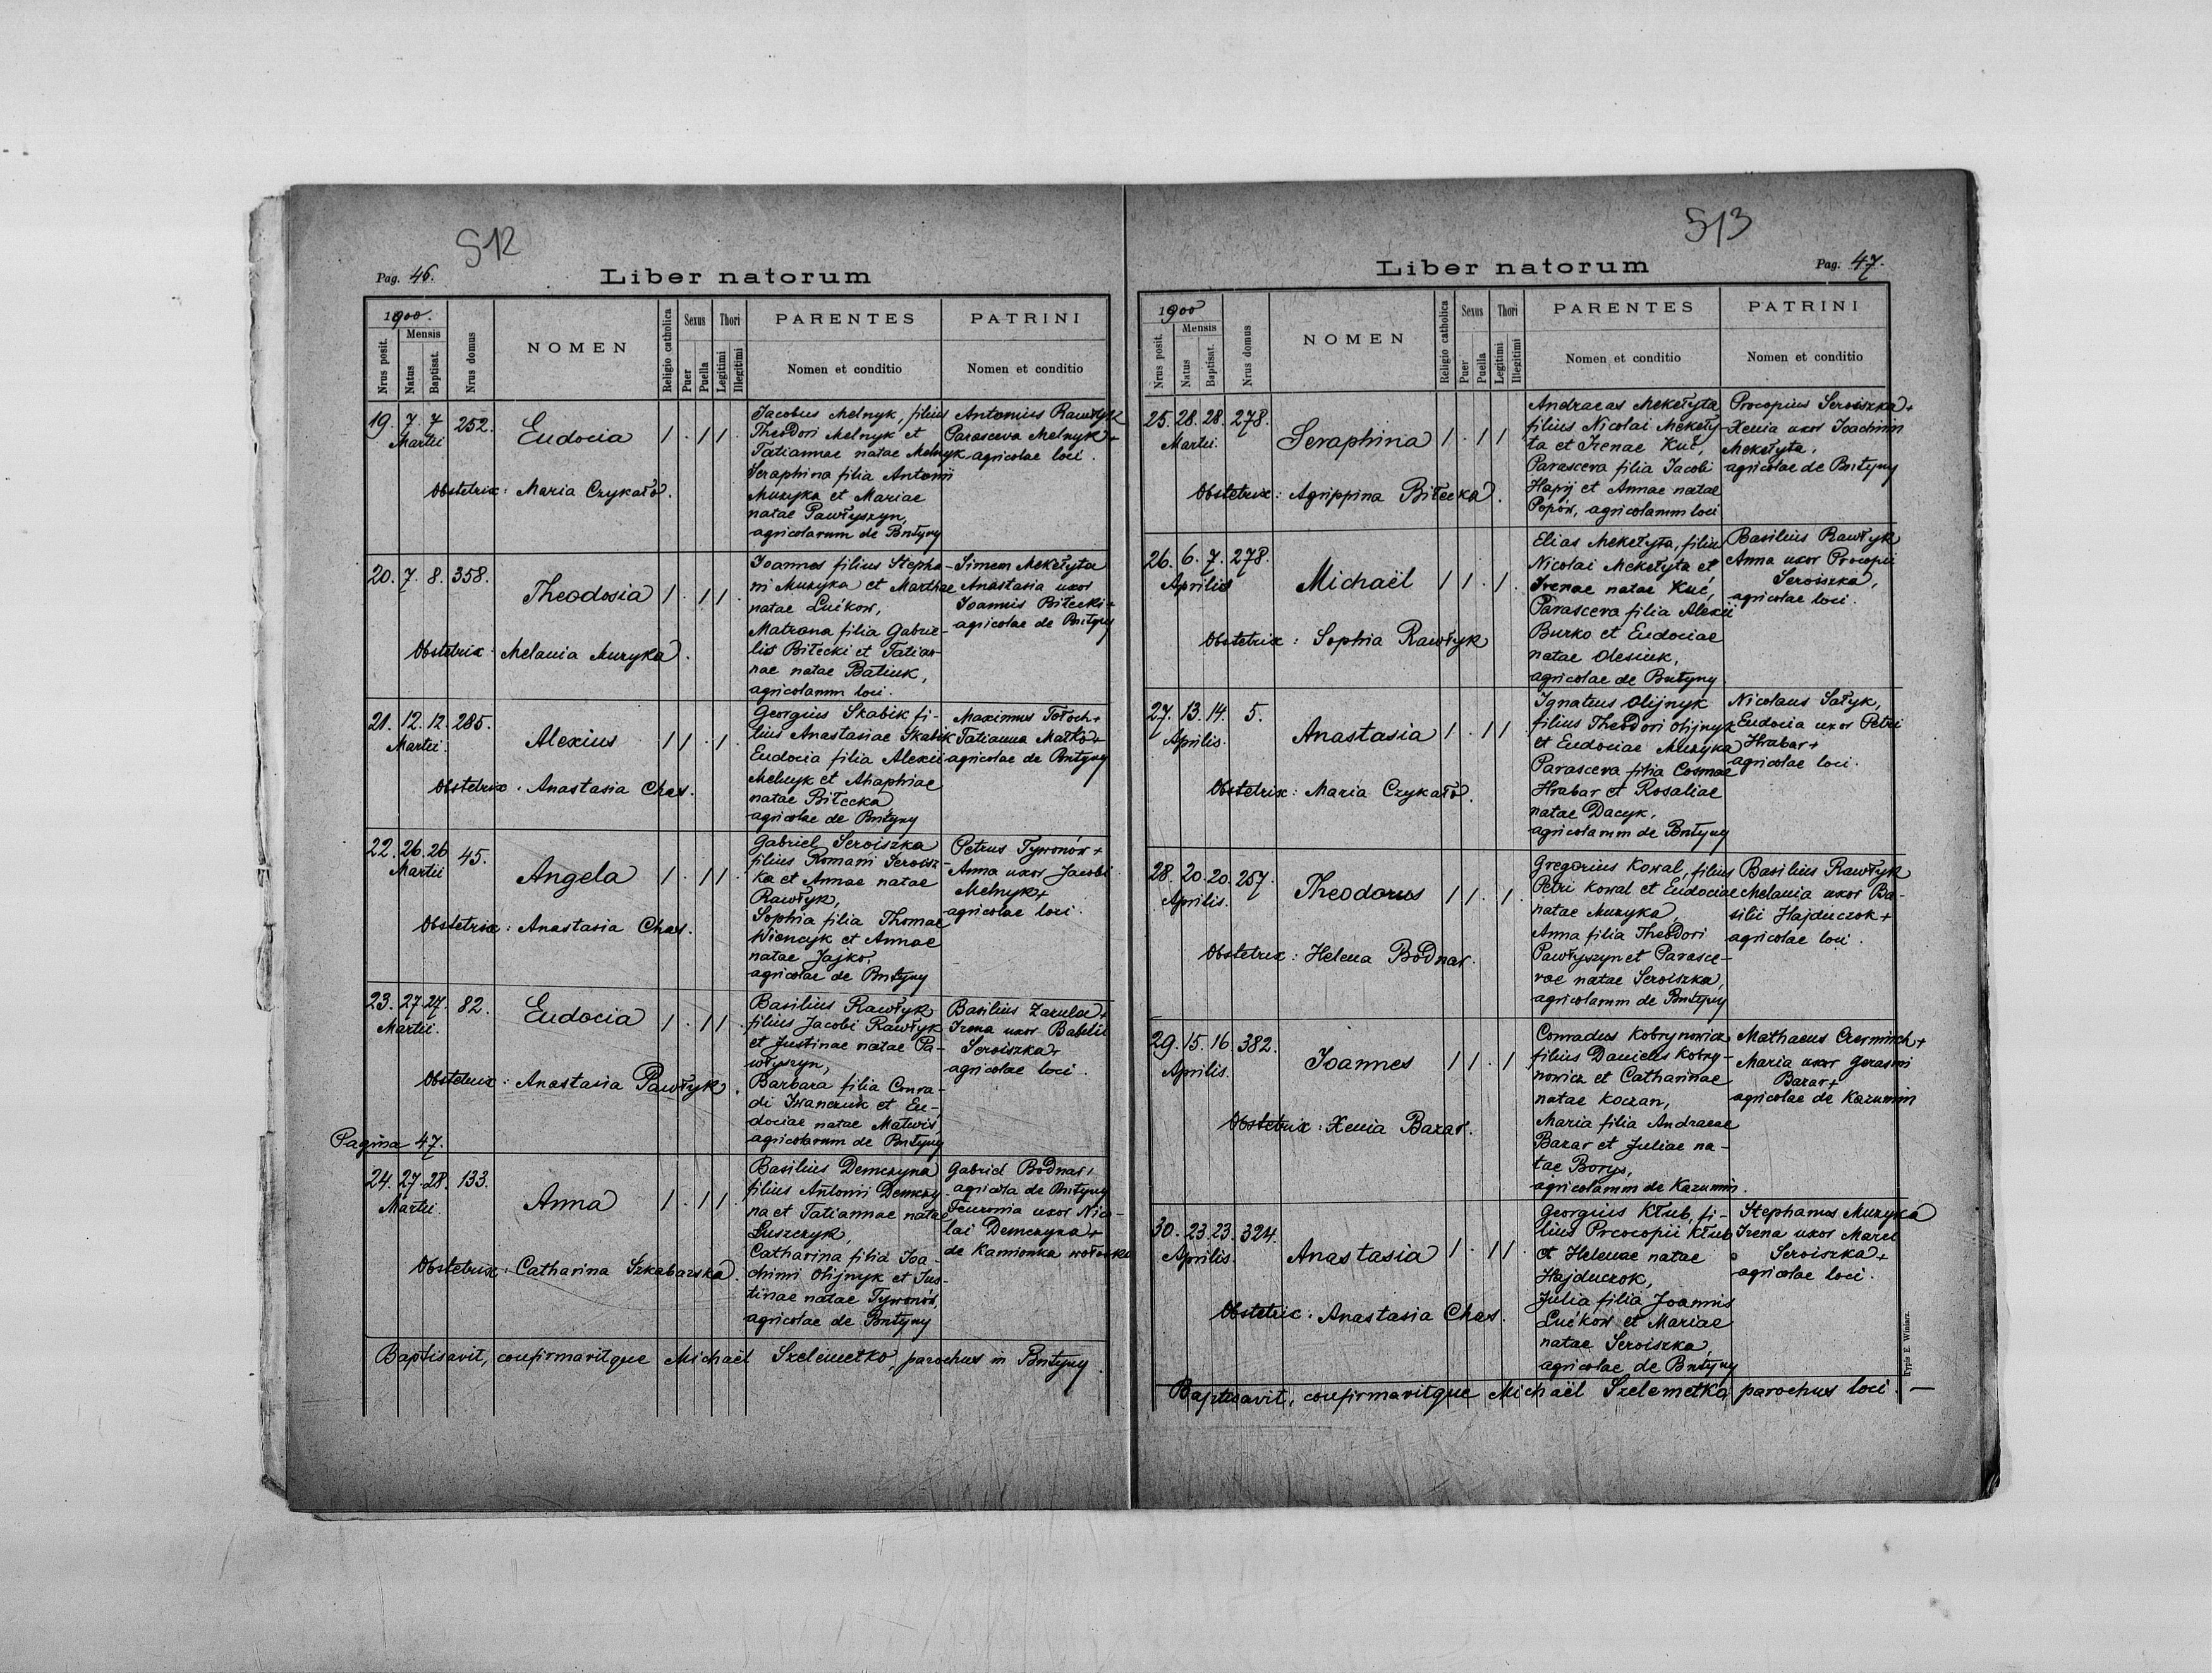 512
Pag. 46.
Liber natorum
1900.
Nrus posit.
Mensis
Natus
Baptisat.
Nrus domus
NOMEN
Religio catholica
Sexus
Puer
Puella
Thori
Legitimi
Illegitimi
PARENTES
Nomen et conditio
PATRINI
Nomen et conditio
19. 7. 7. 252.
Martii
Eudocia
Obstetrix: Maria Czykało.
Jacobus Melnyk, filius
Theodori Melnyk et
Tatiannae natae Melnyk
Seraphina filia Antonii
Muzyka et Mariae
natae Pawłyszyn,
agricolarum de Bntyny
Antonius Rawłyk
Parasceva Melnyk +
agricolae loci.
20. 7. 8. 358.
Theodosia
Obstetrix: Melania Muzyka.
Joannes filius Stepha-
ni Muzyka et Marthae
natae Lućkow,
Matrona filia Gabrie-
lis Biłecki et Tatian-
nae natae Batiuk,
agricolamm loci.
Simeon Mekełyta
Anastasia uxor
Joannis Biłecki +
agricolae de Bntyny
21. 12. 12. 285.
Martii.
Alexius
Obstetrix: Anastasia Chas.
Georgius Skabik fi-
lius Anastasiae Skabik
Eudocia filia Alexii
Melnyk et Ahaphiae
natae Biłecka
agricolae de Bntyny
Maximus Tołoch +
Tatianna Matko +
agricolae de Bntyny
22. 26. 26 45.
Martii
Angela
Obstetrix: Anastasia Chas.
Gabriel Seroiszka
filius Romani Seroisz-
ka et Annae natae
Rawłyk,
Sophia filia Thomae
Wiencyk et Annae
natae Jajko,
agricolae de Bntyny
Petrus Tywonów +
Anna uxor Jacobi
Melnyk +
agricolae loci.
23. 27. 27. 82.
Martii.
Eudocia
Obstetrix: Anastasia Pawłyk.
Basilius Rawłyk
filius Jacobi Rawłyk
et Justinae natae Pa-
włyszyn,
Barbara filia Conra-
di Iwanczuk et Eu-
dociae natae Matwis,
agricolarum de Bntyny
Basilius Zarula +
Irena uxor Babilii
Seroiszka +
agricolae loci.
Pagina 47.
24. 27. 28. 133.
Martii.
Anna
Obstetrix: Catharina Szkabarska.
Basilius Demczyna
filius Antonii Demczy-
na et Tatiannae natae
Łuszczyk,
Catharina filia Joa-
chimi Olijnyk et Jus-
tinae natae Tywonów,
agricolae de Bntyny
Gabriel Bodnar,
agricola de Bntyny
Feuronia uxor Nico-
lai Demczyna +
de Kamionka wołoska
Baptisavit, confirmavitque Michaël Szelemetko, parochus in Bntyny.
513
Liber natorum
Pag. 47.
1900
Nrus posit.
Mensis
Natus
Baptisat.
Nrus domus
NOMEN
Religio catholica
Sexus
Puer
Puella
Thori
Legitimi
Illegitimi
PARENTES
Nomen et conditio
PATRINI
Nomen et conditio
25. 28. 28. 278.
Martii.
Seraphina
Obstetrix: Agrippina Biłecka.
Andraeas Mekełyta
filius Nicolai Mekeły-
ta et Irenae Kuć,
Parasceva filia Jacobi
Hapij et Annae natae
Popów, agricolamm loci
Procopius Seroiszka +
Xenia uxor Joachim
Mekełyta,
agricolae de Bntyny
26. 6. 7. 278.
Aprilis
Michaël
Obstetrix: Sophia Rawłyk
Elias Mekełyta, filius
Nicolai Mekełyta et
Irenae natae Kuć,
Parasceva filia Alexii
Burko et Eudociae
natae Olesiuk,
agricolae de Bntyny
Basilius Rawłyk
Anna uxor Procopii
Seroiszka,
agricolae loci.
27. 13. 14. 5.
Aprilis.
Anastasia
Obstetrix: Maria Czykało.
Ignatius Olijnyk
filius Theodori Olijnyk
et Eudociae Muzyka
Parasceva filia Cosmae
Hrabar et Rosaliae
natae Dacyk,
agricolamm de Bntyny
Nicolaus Sałyk,
Eudocia uxor Petri
Hrabar +
agricolae loci.
28. 20. 20. 257.
Aprilis.
Theodorus
Obstetrix: Helena Bodnar.
Gregorius Kowal, filius
Petri Kowal et Eudociae
natae Muzyka,
Anna filia Theodori
Pawłyszyn et Parasce-
vae natae Seroiszka,
agricolamm de Bntyny
Basilius Rawłyk
Melania uxor Ba-
silii Hajduczok +
agricolae loci.
29. 15. 16. 382.
Aprilis.
Joannes
Obstetrix: Xenia Bazar.
Conradus Kobrynowicz
filius Danielis Kobry-
nowicz et Catharinae
natae Koczan,
Maria filia Andraeae
Bazar et Juliae na-
tae Borys,
agricolamm de Kazumin.
Mathaeus Czerminch +
Maria uxor Gerasimi
Bazar +
agricolae de Kazumin
30. 23. 23. 324.
Aprilis.
Anastasia
Obstetrix: Anastasia Chas.
Georgius Kłub, fi-
lius Procopii Kłub
et Helenae natae
Hajduczok,
Julia filia Joannis
Lućkow et Mariae
natae Seroiszka,
agricolae de Bntyny
Stephanus Muzyka
Irena uxor Marci
Seroiszka +
agricolae loci.
Baptisavit, confirmavitque Michaël Szelemetka, parochus loci. —
Typis E. Winiarz.